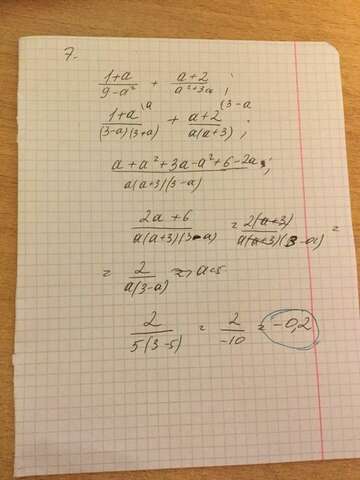 7.
(1+a)/(9-a²) + (a+2)/(a²+3a) ;
(1+a)\a/((3-a)(3+a)) + (a+2)\(3-a/(a(a+3)) ;
(a+a²+3a-a²+6-2a)/(a(a+3)(3-a)) ;
(2a+6)/(a(a+3)(3-a)) = (2(a+3))/(a(a+3)(3-a)) =
= 2/(a(3-a)) => a=5
2/(5(3-5)) = 2/(-10) = -0,2